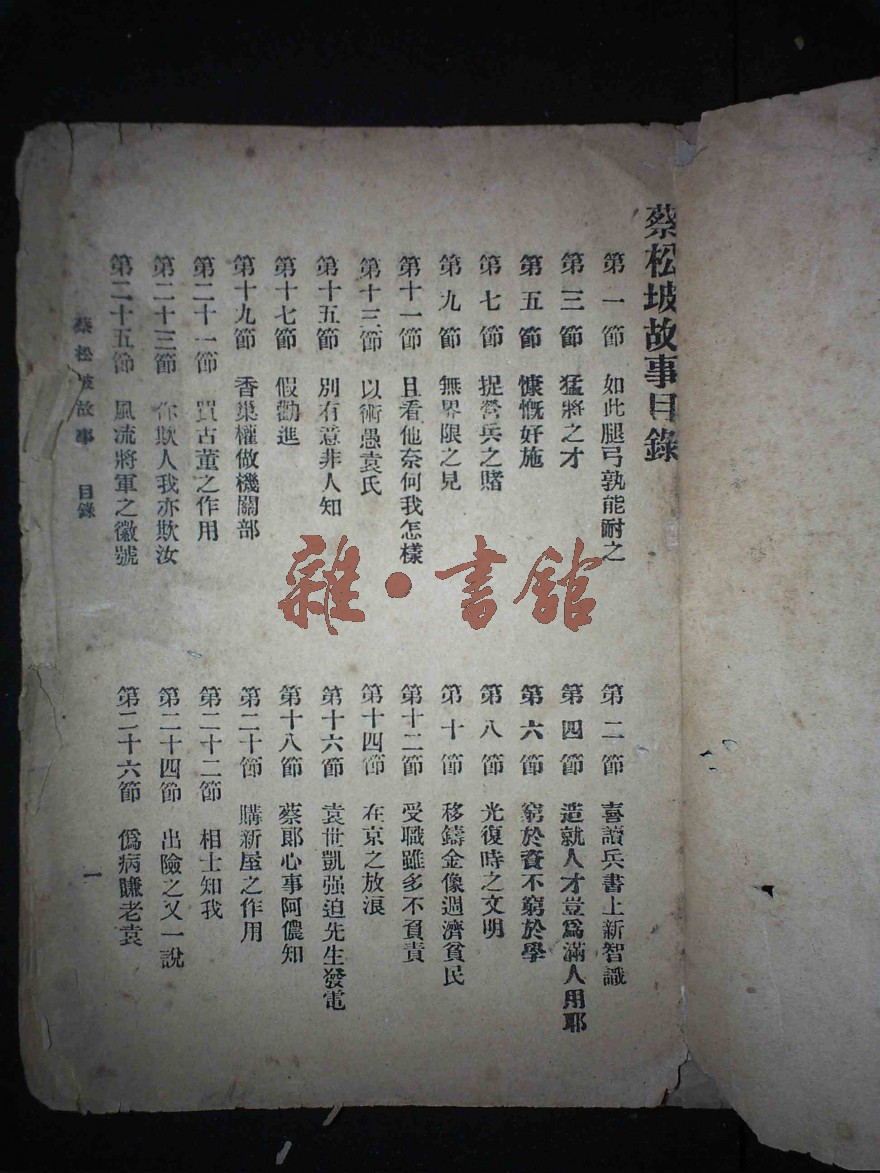 蔡松坡故事目錄
第一節 如此腿弓孰能耐之
第二節 喜讀兵書上新智識
第三節 猛將之才
第四節 造就人才豈爲滿人用耶
第五節 慷慨好施
第六節 窮於資不窮於學
第七節 捉營兵之賭
第八節 光復時之文明
第九節 無界限之見
第十節 移鑄金像週濟貧民
第十一節 且看他奈何我怎樣
第十二節 受職雖多不負責
第十三節 以術愚袁氏
第十四節 在京之放浪
第十五節 別有意非人知
第十六節 袁世凱强迫先生發電
第十七節 假勸進
第十八節 蔡郎心事阿儂知
第十九節 香巢權做機關部
第二十節 購新屋之作用
第二十一節 買古董之作用
第二十二節 相士知我
第二十三節 你欺人我亦欺汝
第二十四節 出險之又一說
第二十五節 風流將軍之徽號
第二十六節 僞病賺老袁
蔡松坡故事 目錄 一
雜·書館